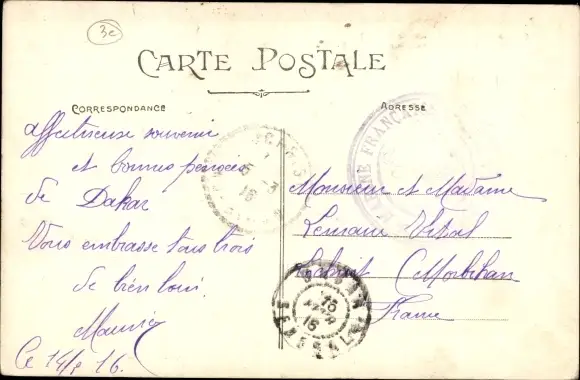 3e
CARTE POSTALE
CORRESPONDANCE
ADRESSE
affectueuse souvenir
et bonnes pensées
de Dakar
Vous embrasse tous trois
de bien loin.
Maurice
Ce 14/3 16.
Monsieur et Madame
Vital
Morbihan
France
FRANÇAISE
DAKAR
15
MARS
16
SENEGAL